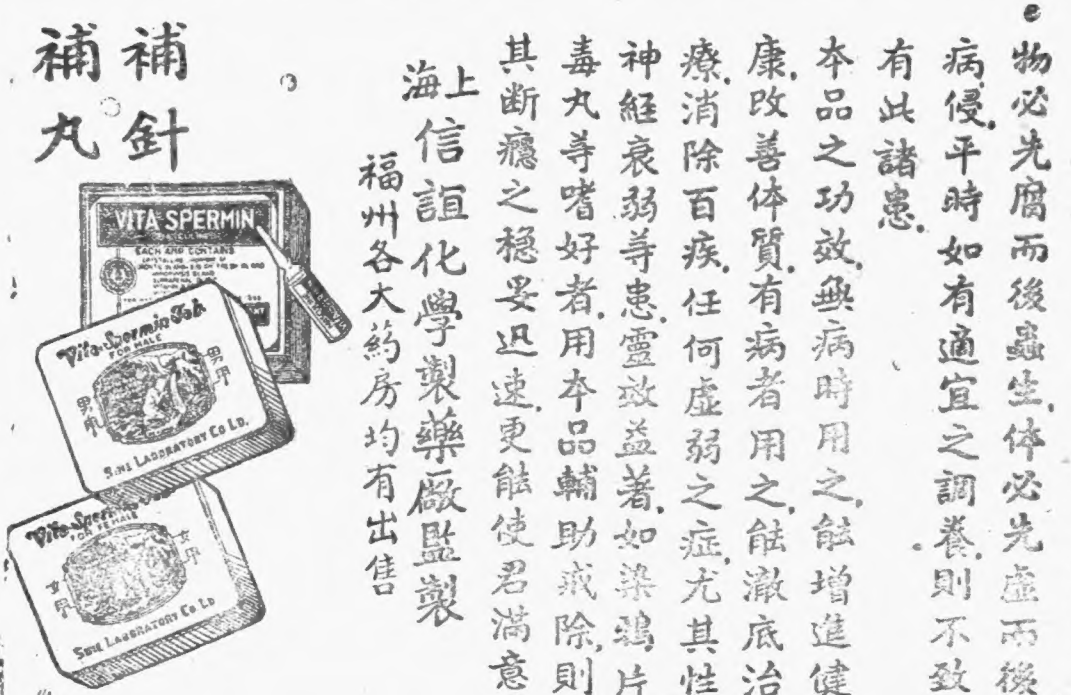 物必先腐而後蟲生.体必先虛而後
病侵.平時如有適宜之調養.則不致
有此諸患.
本品之功效.無病時用之.能增進健
康.改善体質.有病者用之.能澈底治
療.消除百疾.任何虛弱之症.尤其性
神經衰弱等患.靈效益著.如染鴉片
毒丸等嗜好者.用本品輔助戒除.則
其断癮之穏妥迅速.更能使君滿意
上海信誼化學製藥廠監製
福州各大葯房均有出售
補針
補丸
VITA SPERMIN
EACH AMP CONTAINS
Vita-Spermin Tab.
FOR MALE
男用
男用
SINE LABORATORY CO LD.
Vita-Spermin
FOR FEMALE
女用
女用
SINE LABORATORY CO LD